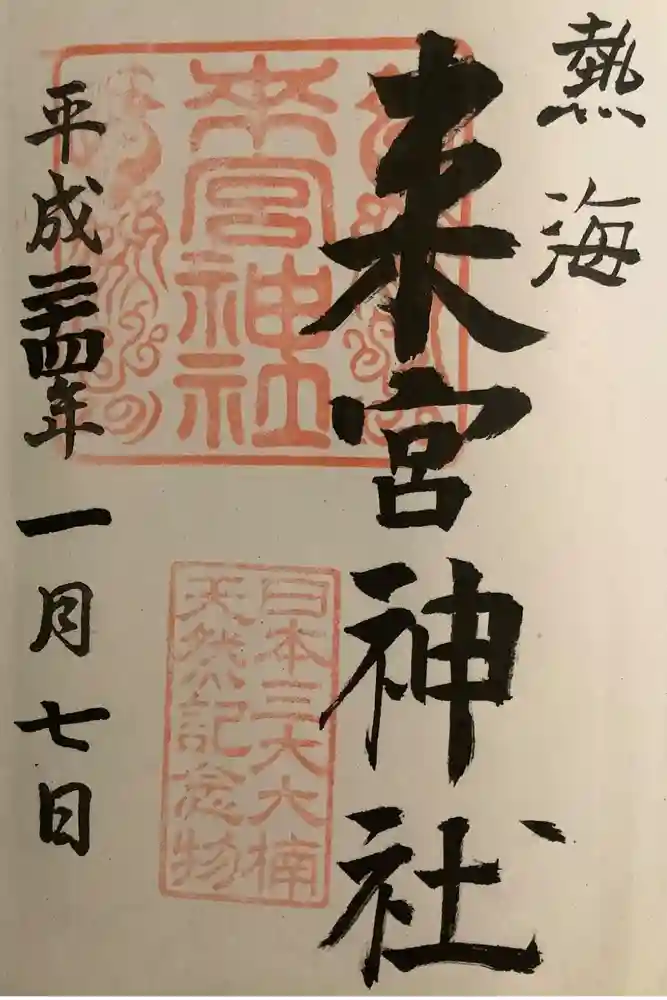 熱海
来宮神社
来宮神社
日本三大大楠
天然記念物
平成二十四年一月七日